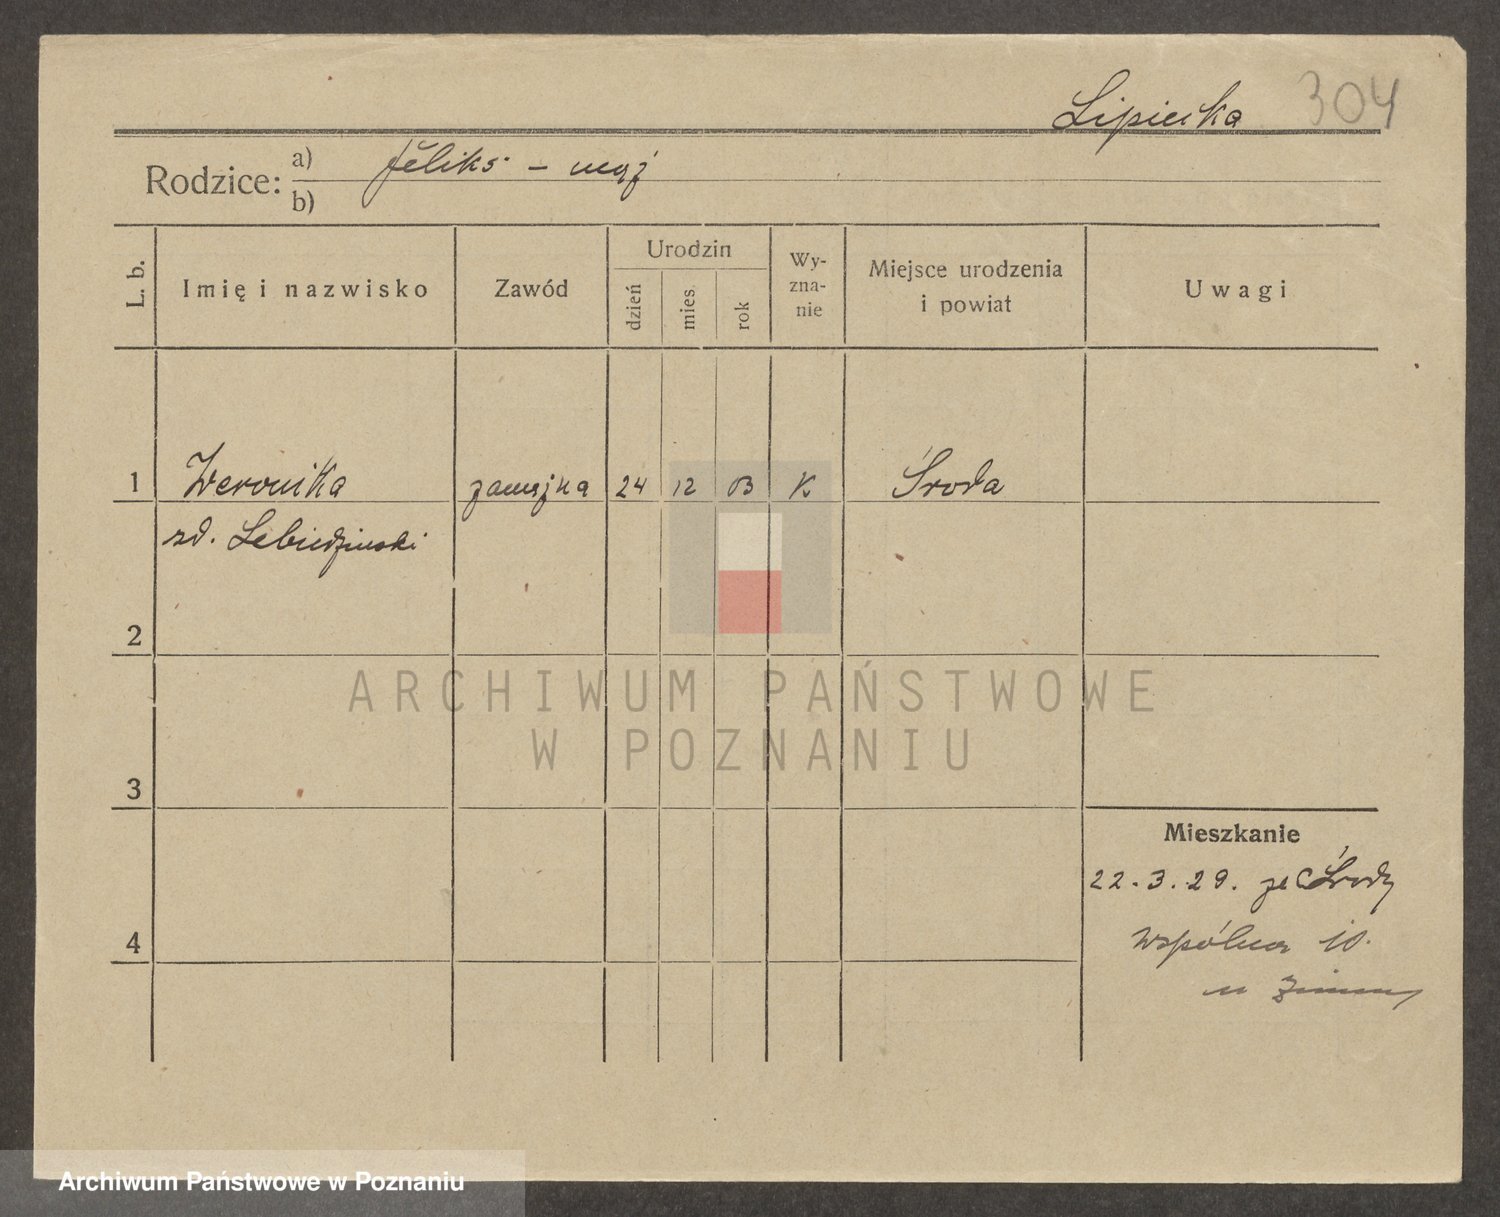 304
Lipiecka
Rodzice: a) Feliks - mąż
b)
L. b.
Imię i nazwisko
Zawód
Urodzin
dzień
mies.
rok
Wy-
zna-
nie
Miejsce urodzenia
i powiat
Uwagi
1 Weronika zamężna 24 12 03 K Środa
zd. Lebiedzinski
2
3
4
Mieszkanie
22.3.29. ze Środy
Wspólna 10.
ARCHIWUM PAŃSTWOWE
W POZNANIU
Archiwum Państwowe w Poznaniu